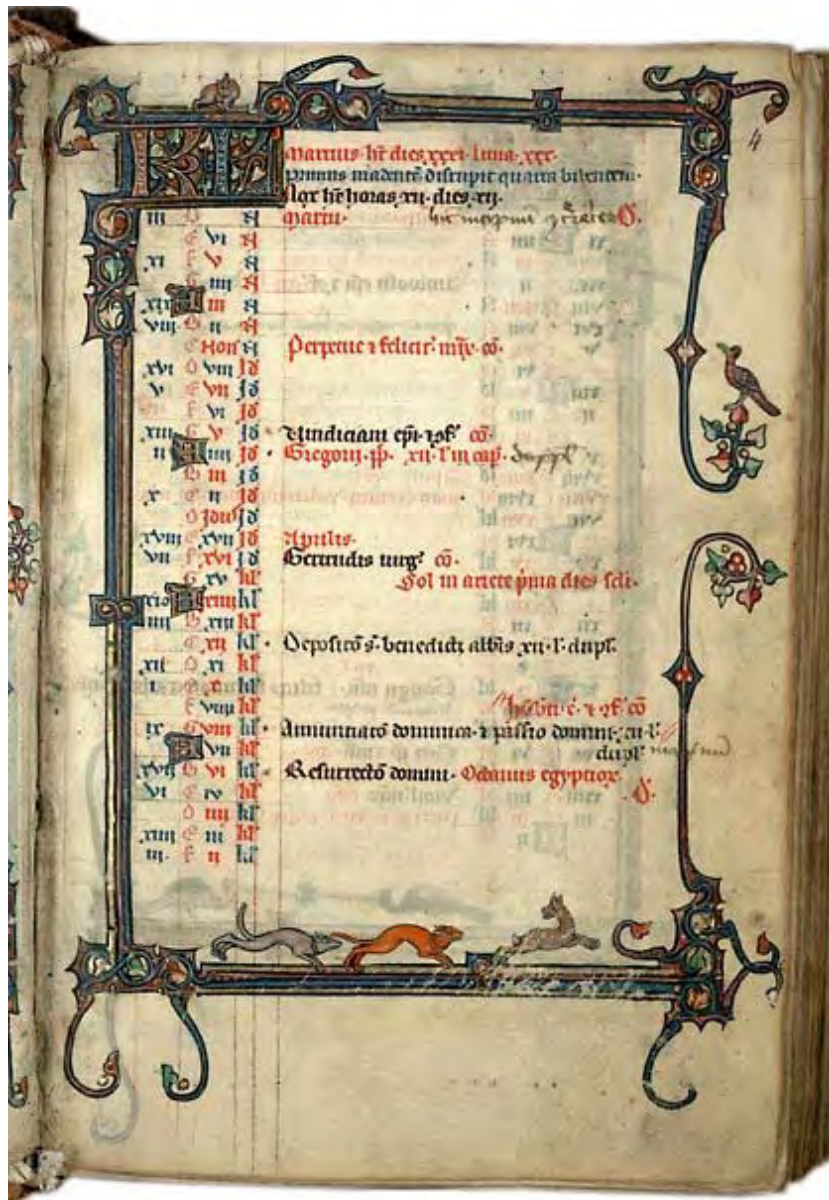 4
KL
Marcius ht dies xxxi luna xxx
Primus madentē disrūpit quarta bibentem
Nox ht horas xii dies xii
iii D kl Marcii
E vi
xi F v
G iiii
xix A iii
viii B ii
C Non Perpetue ⁊ felicit' cō
xvi D viii Id
v E vii Id
F vi Id
xiii G v Id epī ⁊ cō
ii A iiii Id Gregorii pp xii l' in cap dupl'
B iii Id
x C ii Id
D Idus
xviii E xvii Aprilis
vii F xvi Gertrudis uirg' cō
G xv kl'
Sol in ariete prima dies scli
A xiiii kl'
iiii B xiii kl'
C xii kl' Deposicō s' benedicti abbis xii l' dupl'
xii D xi kl'
i E x kl'
F viiii kl'
cō
ix G viii kl' Annunciacō dominica ⁊ passio domini xii l'
dupl'
A vii kl'
xvii B vi kl' Resurreccō domini
vi C v kl'
D iiii kl'
xiiii E iii kl'
iii F ii kl'